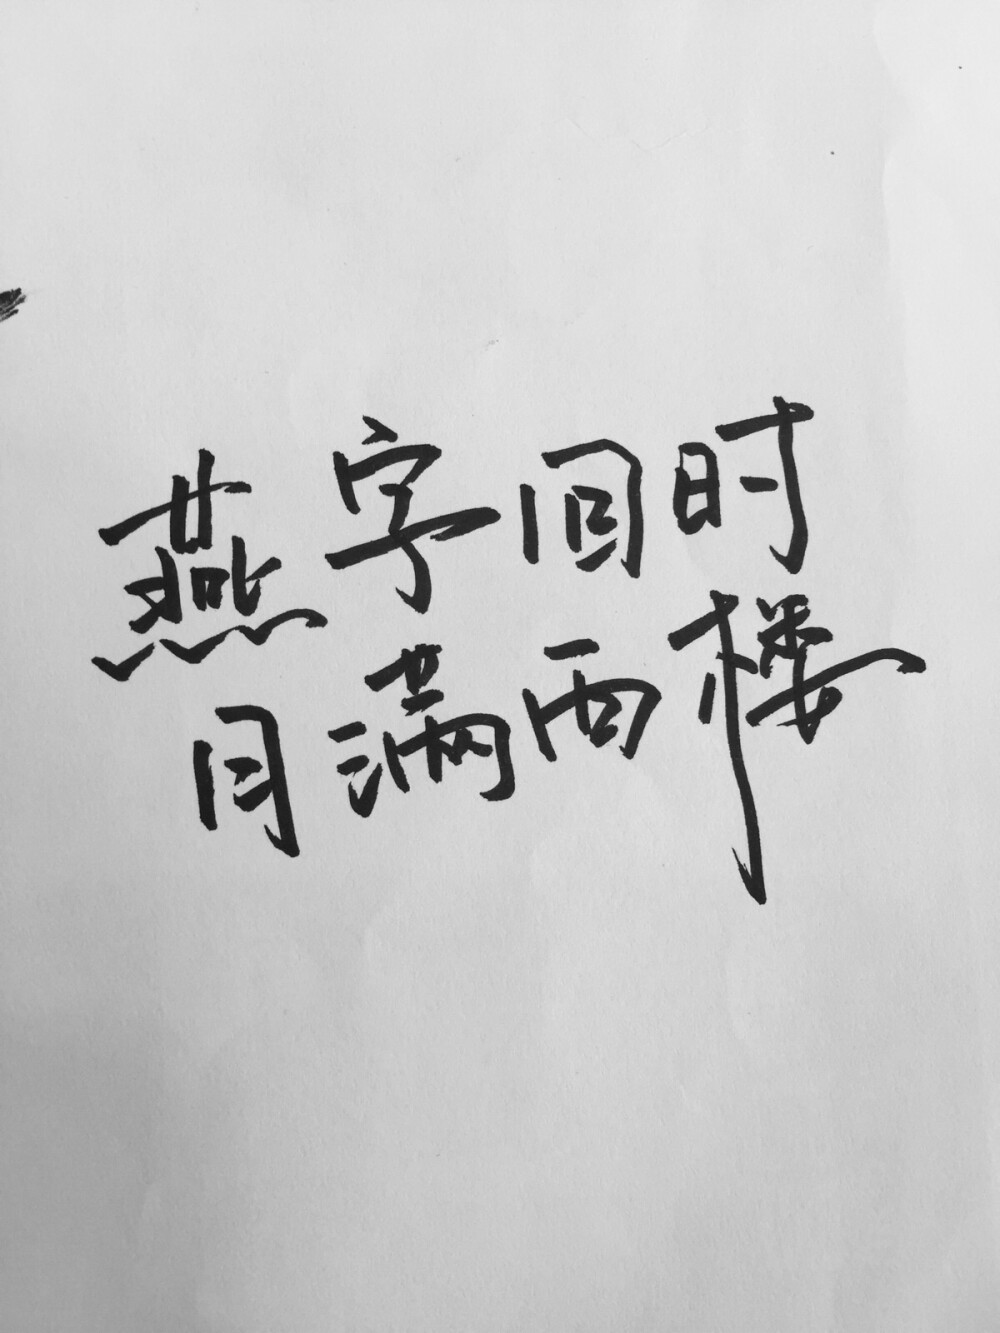 燕字回时
月满西楼